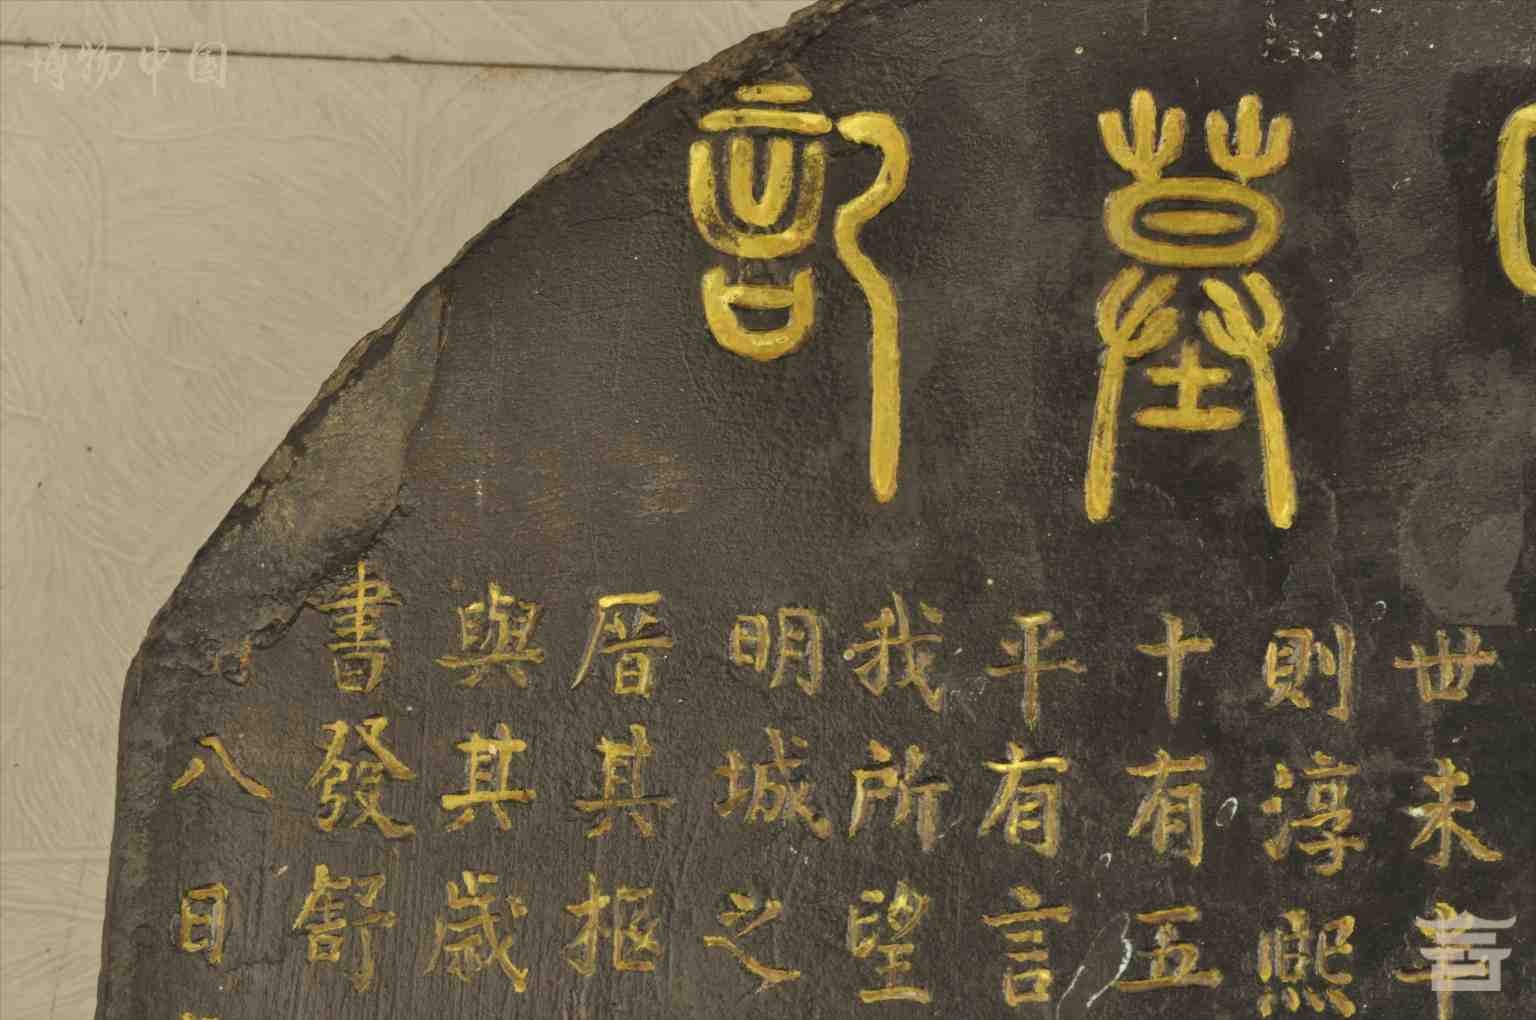 墓記
世未辛
則淳熙
十有五
平有言
我所望
明城之
厝其柩
與其歲
書發舒
八日
博物中国